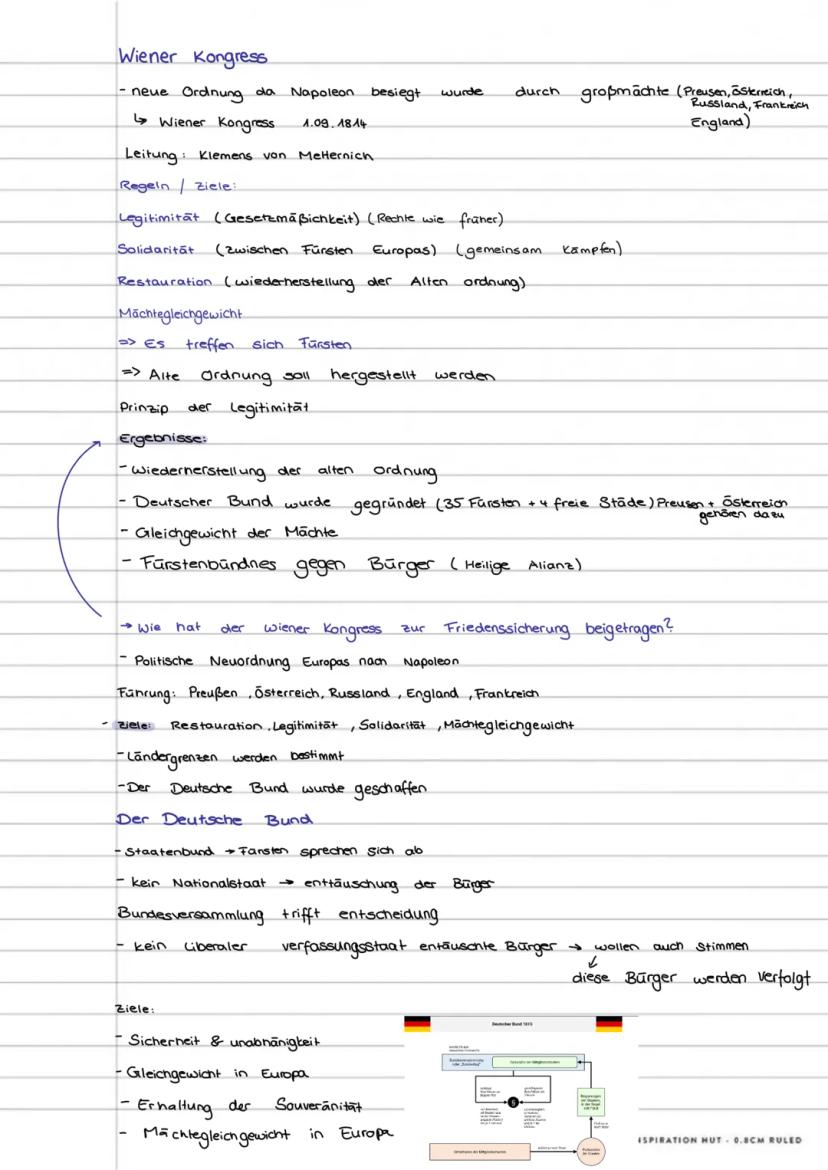 Wiener Kongress
- neue Ordnung da Napoleon besiegt wurde durch großmächte (Preusen, Österreich, Russland, Frankreich England)
↳ Wiener Kongress 1.09.1814
Leitung: Klemens von Metternich
Regeln / Ziele:
Legitimität (Gesetzmäßichkeit) (Rechte wie früher)
Solidarität (zwischen Fürsten Europas) (gemeinsam kämpfen)
Restauration (wiederherstellung der Alten ordnung)
Mächtegleichgewicht
=> Es treffen sich Fürsten
=> Alte Ordnung soll hergestellt werden
Prinzip der Legitimität
Ergebnisse:
- Wiederherstellung der alten Ordnung
- Deutscher Bund wurde gegründet (35 Fürsten + 4 freie Städe) Preusen + Österreich gehören dazu
- Gleichgewicht der Mächte
- Fürstenbündnes gegen Bürger (Heilige Alianz)
→ Wie hat der wiener Kongress zur Friedenssicherung beigetragen?
- Politische Neuordnung Europas nach Napoleon
Führung: Preußen, Österreich, Russland, England, Frankreich
- Ziele: Restauration, Legitimität, Solidarität, Mächtegleichgewicht
- Ländergrenzen werden bestimmt
- Der Deutsche Bund wurde geschaffen
Der Deutsche Bund
- Staatenbund → Fürsten sprechen sich ab
- kein Nationalstaat → enttäuschung der Bürger
Bundesversammlung trifft entscheidung
- kein Liberaler verfassungsstaat entäuschte Bürger → wollen auch stimmen
↙
diese Bürger werden verfolgt
Ziele:
- Sicherheit & unabhänigkeit
- Gleichgewicht in Europa
- Erhaltung der Souveränität
- Mächtegleichgewicht in Europa
Deutscher Bund 1815
NSPIRATION HUT - 0.8CM RULED